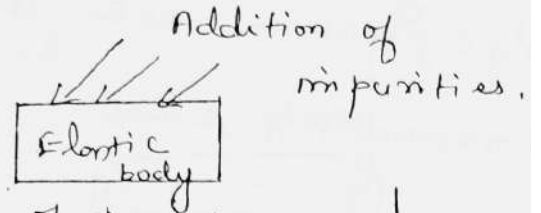 Addition of
impurities.
Elastic
body